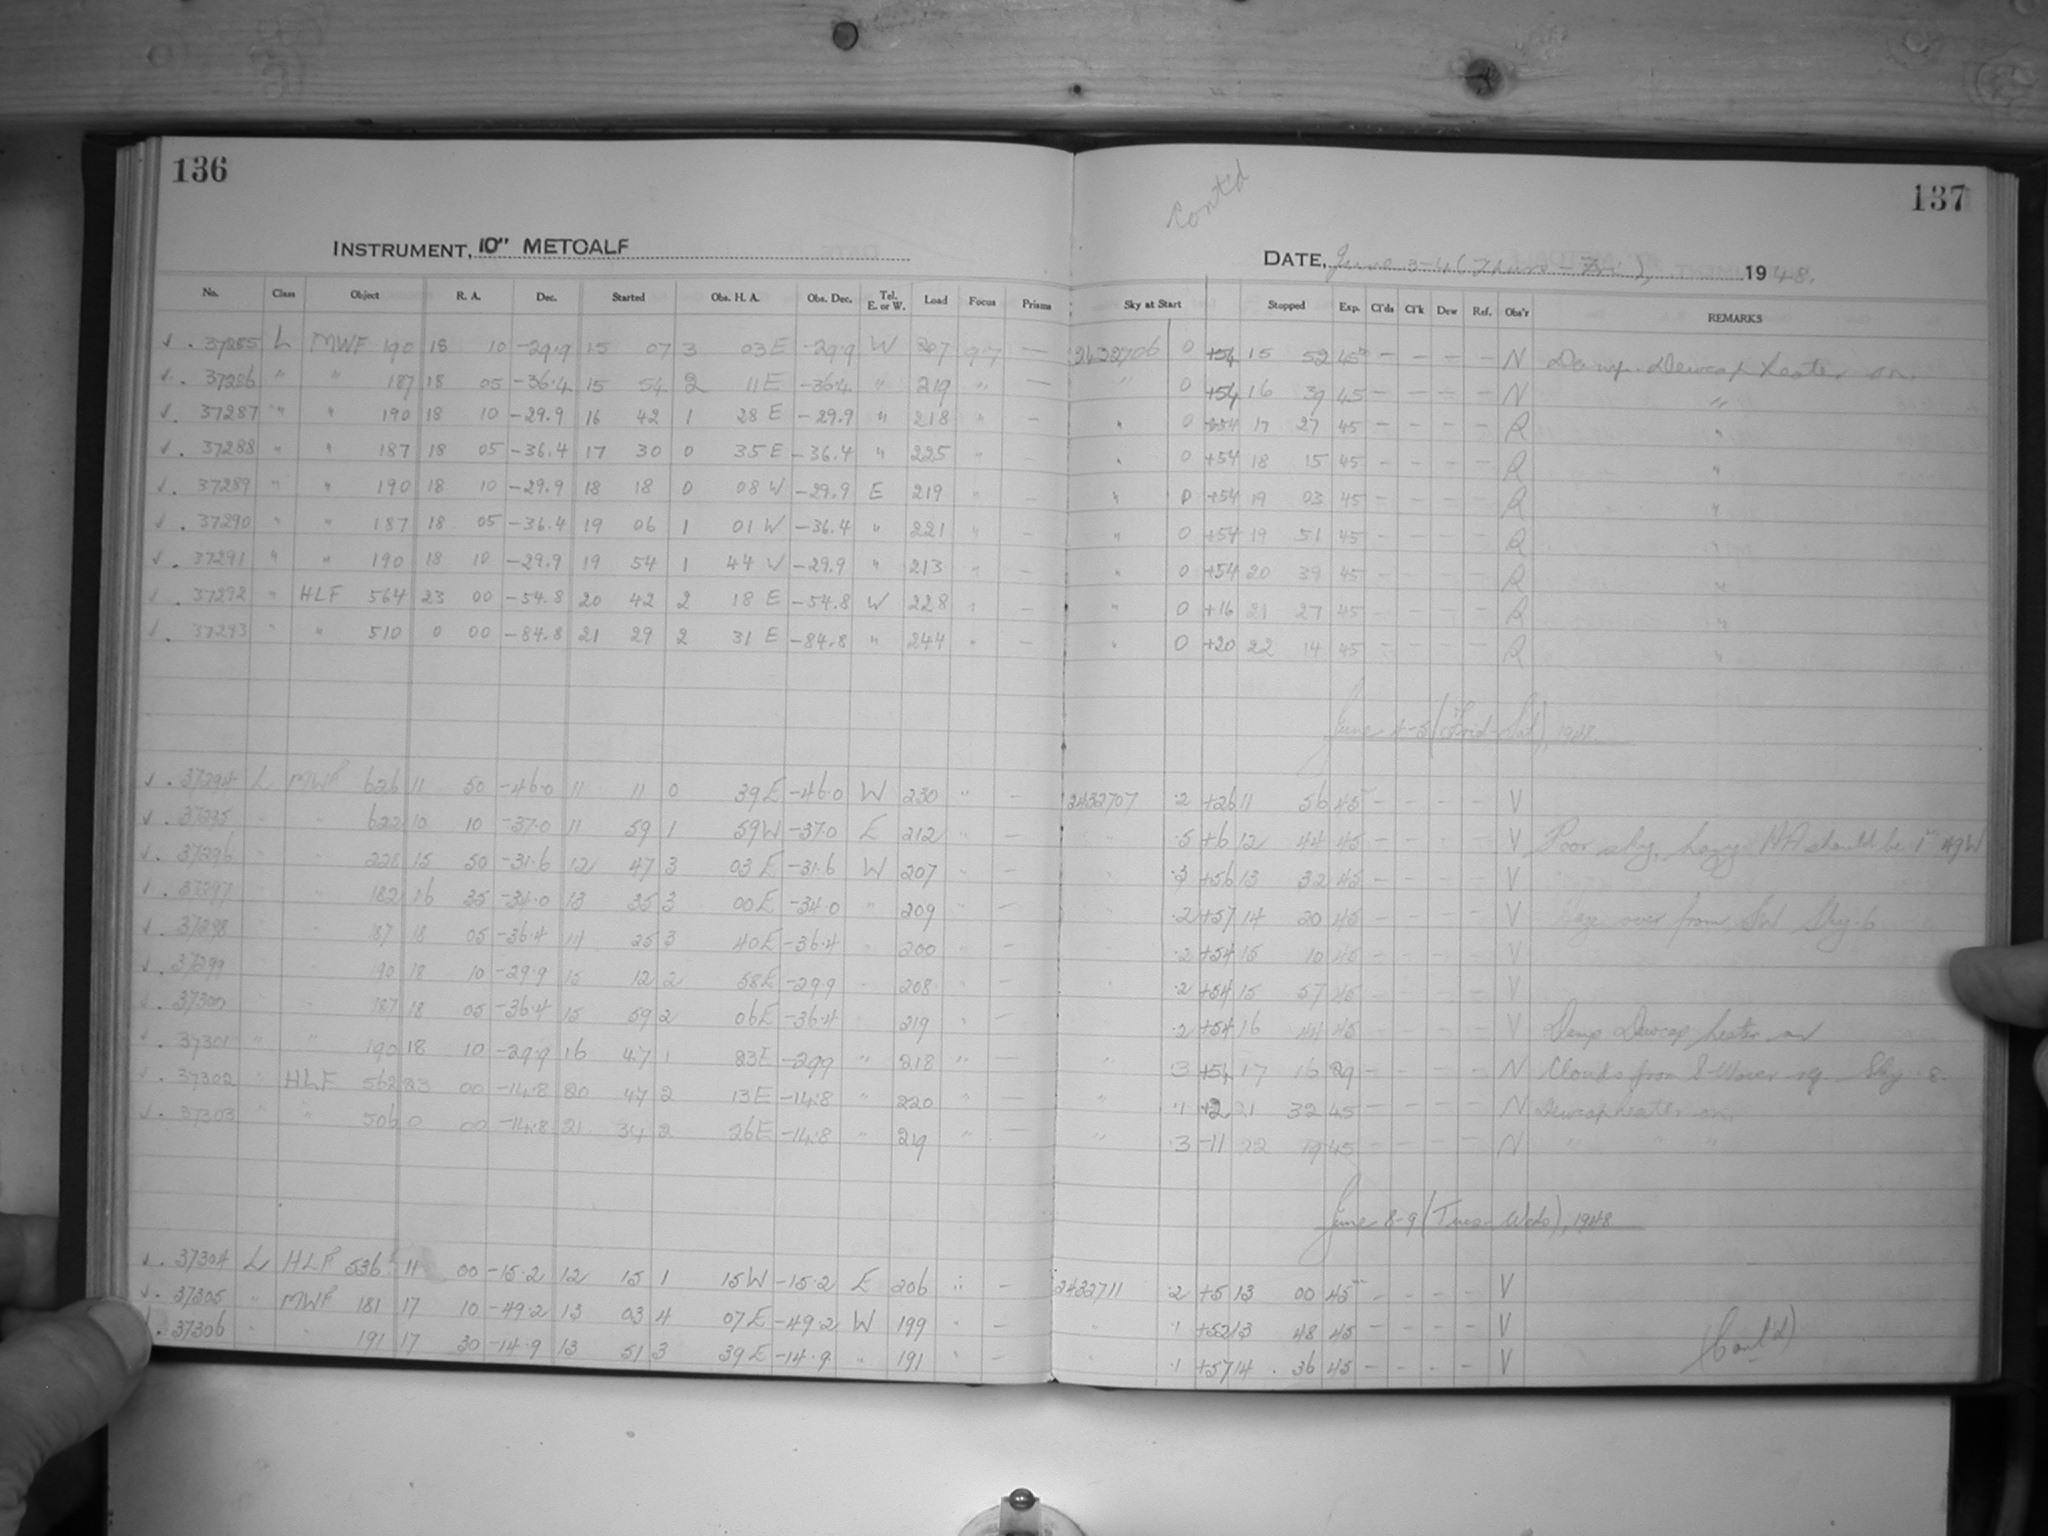 136
137
Contd
INSTRUMENT, 10" METCALF
DATE, June 3-4 (Thurs - Fri), 1948.
No. Class Object R. A. Dec. Started Obs. H. A. Obs. Dec. Tel. E. or W. Load Focus Prisms Sky at Start Stopped Exp. Cl'ds Cl'k Dew Ref. Obs'r REMARKS
√ . 37285 L MWF 190 18 10 -29.9 15 07 3 03 E -29.9 W 207 9.7 — 2432706 0 +54 15 52 45 — — — — N Damp. Dewcap heater on.
√ . 37286 " " 187 18 05 -36.4 15 54 2 11 E -36.4 " 219 " — " 0 +54 16 39 45 — — — — N "
√ . 37287 " " 190 18 10 -29.9 16 42 1 28 E -29.9 " 218 " — " 0 +54 17 27 45 — — — — R "
√ . 37288 " " 187 18 05 -36.4 17 30 0 35 E -36.4 " 225 " — " 0 +54 18 15 45 — — — — R "
√ . 37289 " " 190 18 10 -29.9 18 18 0 08 W -29.9 E 219 " — " 0 +54 19 03 45 — — — — R "
√ . 37290 " " 187 18 05 -36.4 19 06 1 01 W -36.4 " 221 " — " 0 +54 19 51 45 — — — — R "
√ . 37291 " " 190 18 10 -29.9 19 54 1 44 W -29.9 " 213 " — " 0 +54 20 39 45 — — — — R "
√ . 37292 " HLF 564 23 00 -54.8 20 42 2 18 E -54.8 W 228 " — " 0 +16 21 27 45 — — — — R "
√ . 37293 " " 510 0 00 -84.8 21 29 2 31 E -84.8 " 244 " — " 0 +20 22 14 45 — — — — R "
June 4-5 (Frid - Sat), 1948.
√ . 37294 L MWF 626 11 50 -46.0 11 11 0 39 E -46.0 W 230 " — 2432707 .2 +26 11 56 45 — — — — V
√ . 37295 " " 622 10 10 -37.0 11 59 1 59 W -37.0 E 212 " — " .5 +6 12 44 45 — — — — V Poor sky, hazy. HA should be 1 49 W
√ . 37296 " " 228 15 50 -31.6 12 47 3 03 E -31.6 W 207 " — " .3 +56 13 32 45 — — — — V
√ . 37297 " " 182 16 35 -34.0 13 35 3 00 E -34.0 " 209 " — " .2 +57 14 20 45 — — — — V Haze over from SW Sky .6
√ . 37298 " " 187 18 05 -36.4 14 25 3 40 E -36.4 " 200 " — " .2 +54 15 10 45 — — — — V
√ . 37299 " " 190 18 10 -29.9 15 12 2 58 E -29.9 " 208 " — " .2 +54 15 57 45 — — — — V
√ . 37300 " " 187 18 05 -36.4 15 59 2 06 E -36.4 " 219 " — " .2 +54 16 44 45 — — — — V Damp Dewcap heater on
√ . 37301 " " 190 18 10 -29.9 16 47 1 23 E -29.9 " 218 " — " .3 +54 17 16 29 — — — — N Clouds from S. Sky .8.
√ . 37302 " HLF 562 23 00 -14.8 20 47 2 13 E -14.8 " 220 " — " .1 +2 21 32 45 — — — — N Dewcap heater on.
√ . 37303 " " 506 0 00 -14.8 21 34 2 26 E -14.8 " 219 " — " .3 -11 22 19 45 — — — — N " " "
June 8-9 (Tues - Weds), 1948.
√ . 37304 L HLF 536 11 00 -15.2 12 15 1 15 W -15.2 E 206 " — 2432711 .2 +5 13 00 45 — — — — V
√ . 37305 " MWF 181 17 10 -49.2 13 03 4 07 E -49.2 W 199 " — " .1 +52 13 48 45 — — — — V
√ . 37306 " " 191 17 30 -14.9 13 51 3 39 E -14.9 " 191 " — " .1 +57 14 36 45 — — — — V
(Cont'd)